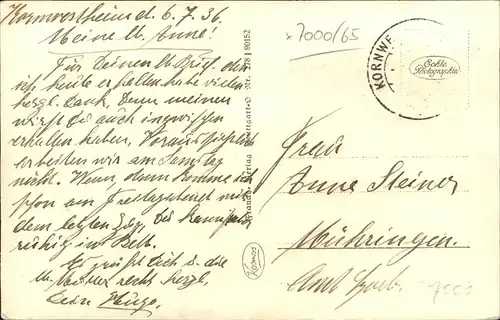 Kornwestheim d. 6.7.36.
Meine lb. Anne!
Für Deinen lb. Brief, den
ich heute erhalten habe vielen
herzl. Dank, Denn meinen
wirst Du auch inzwischen
erhalten haben, Voraussichtlich
arbeiten wir am Samstag
nicht. Wenn, dann komme ich
schon am Freitagabend mit
dem letzten Zug, Du kannst
ruhig im Bett.
Es grüßt Dich u. die
lb. Mutter recht herzl.
Dein Hugo.
Nr. 278 / 90152
Kosmos
x 7000/65
KORNWE
Echte
Photographie
Frau
Anne Steiner
Mühringen.
Amt Horb.
7000